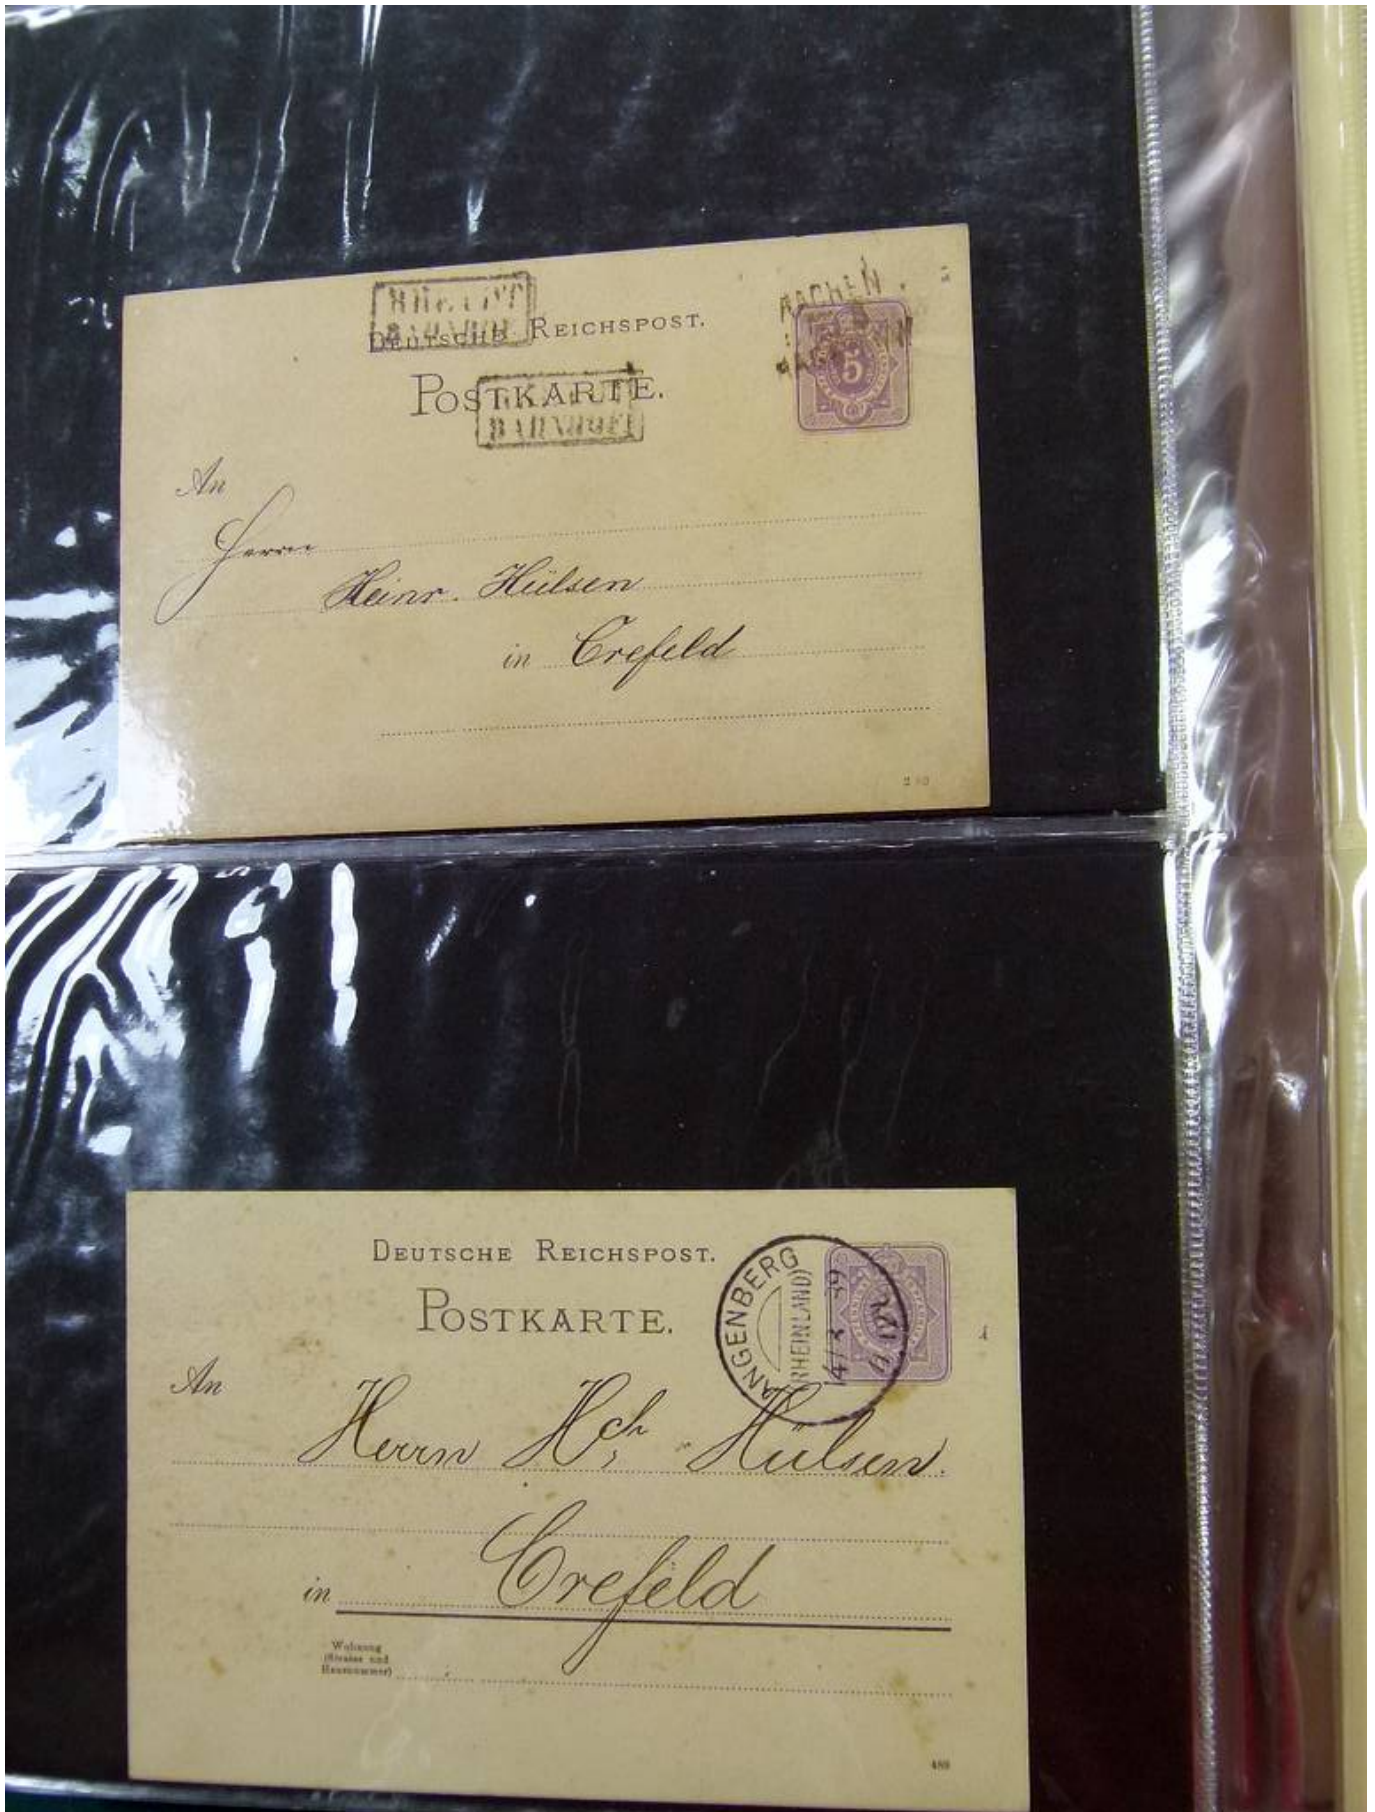 BAHNHOF
DEUTSCHE REICHSPOST.
AACHEN
5
POSTKARTE.
BAHNHOF
An
Herrn
Heinr. Hülsen
in Crefeld
DEUTSCHE REICHSPOST.
POSTKARTE.
LANGENBERG
(RHEINLAND)
14/3 89
An
Herrn Hch Hülsen.
in Crefeld
Wohnung
(Strasse und
Hausnummer)
489